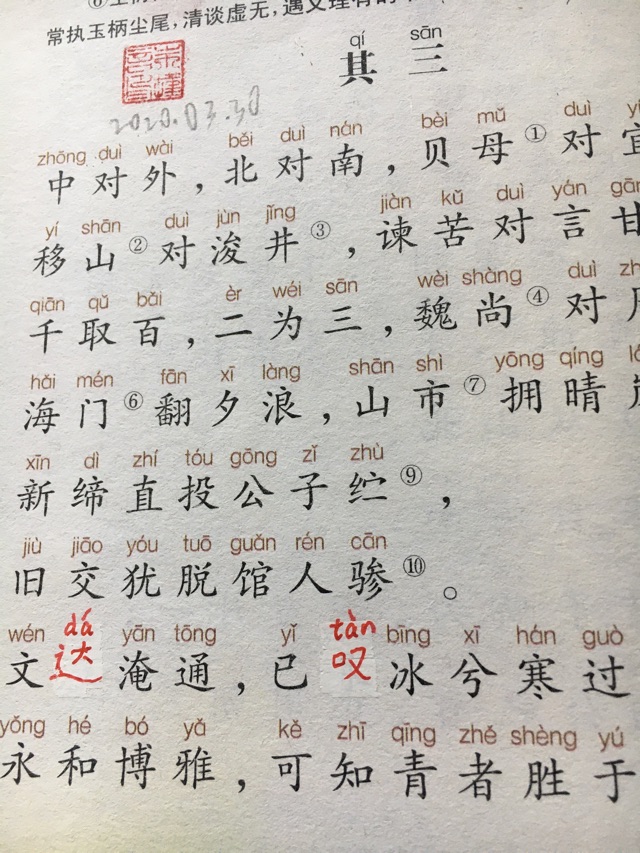 常执玉柄尘尾，清谈虚无，遇文理有
qí sān
其三
2020.03.30
zhōng duì wài běi duì nán bèi mǔ duì
中对外，北对南，贝母①对宜
yí shān duì jùn jǐng jiàn kǔ duì yán gān
移山②对浚井③，谏苦对言甘
qiān qǔ bǎi èr wéi sān wèi shàng duì
千取百，二为三，魏尚④对
hǎi mén fān xī làng shān shì yōng qíng
海门⑥翻夕浪，山市⑦拥晴
xīn dì zhí tóu gōng zǐ zhù
新缔直投公子纻⑨，
jiù jiāo yóu tuō guǎn rén cān
旧交犹脱馆人骖⑩。
wén dá yān tōng yǐ tàn bīng xī hán guò
文达淹通，已叹冰兮寒过
yǒng hé bó yǎ kě zhī qīng zhě shèng yú
永和博雅，可知青者胜于